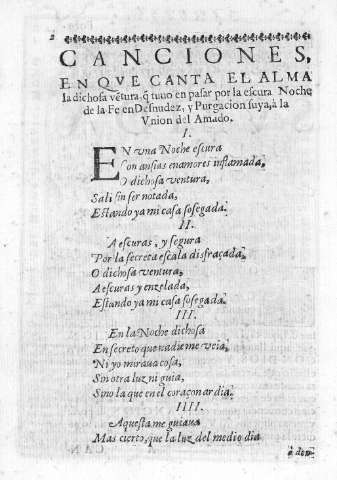 2
CANCIONES,
EN QVE CANTA EL ALMA
la dichosa vẽtura, q̃ tuuo en pasar por la escura Noche
de la Fe en Desnudez, y Purgacion suya, à la
Vnion del Amado.
I.
EN vna Noche escura
Con ansias en amores inflamada,
O dichosa ventura,
Sali sin ser notada,
Estando ya mi casa sosegada.
II.
A escuras, y segura
Por la secreta escala disfraçada,
O dichosa ventura,
A escuras y enzelada,
Estando ya mi casa sosegada.
III.
En la Noche dichosa
En secreto que nadie me veia,
Ni yo miraua cosa,
Sin otra luz ni guia,
Sino la que en el coraçon ardia.
IIII.
Aquesta me guiaua
Mas cierto, que la luz del medio dia